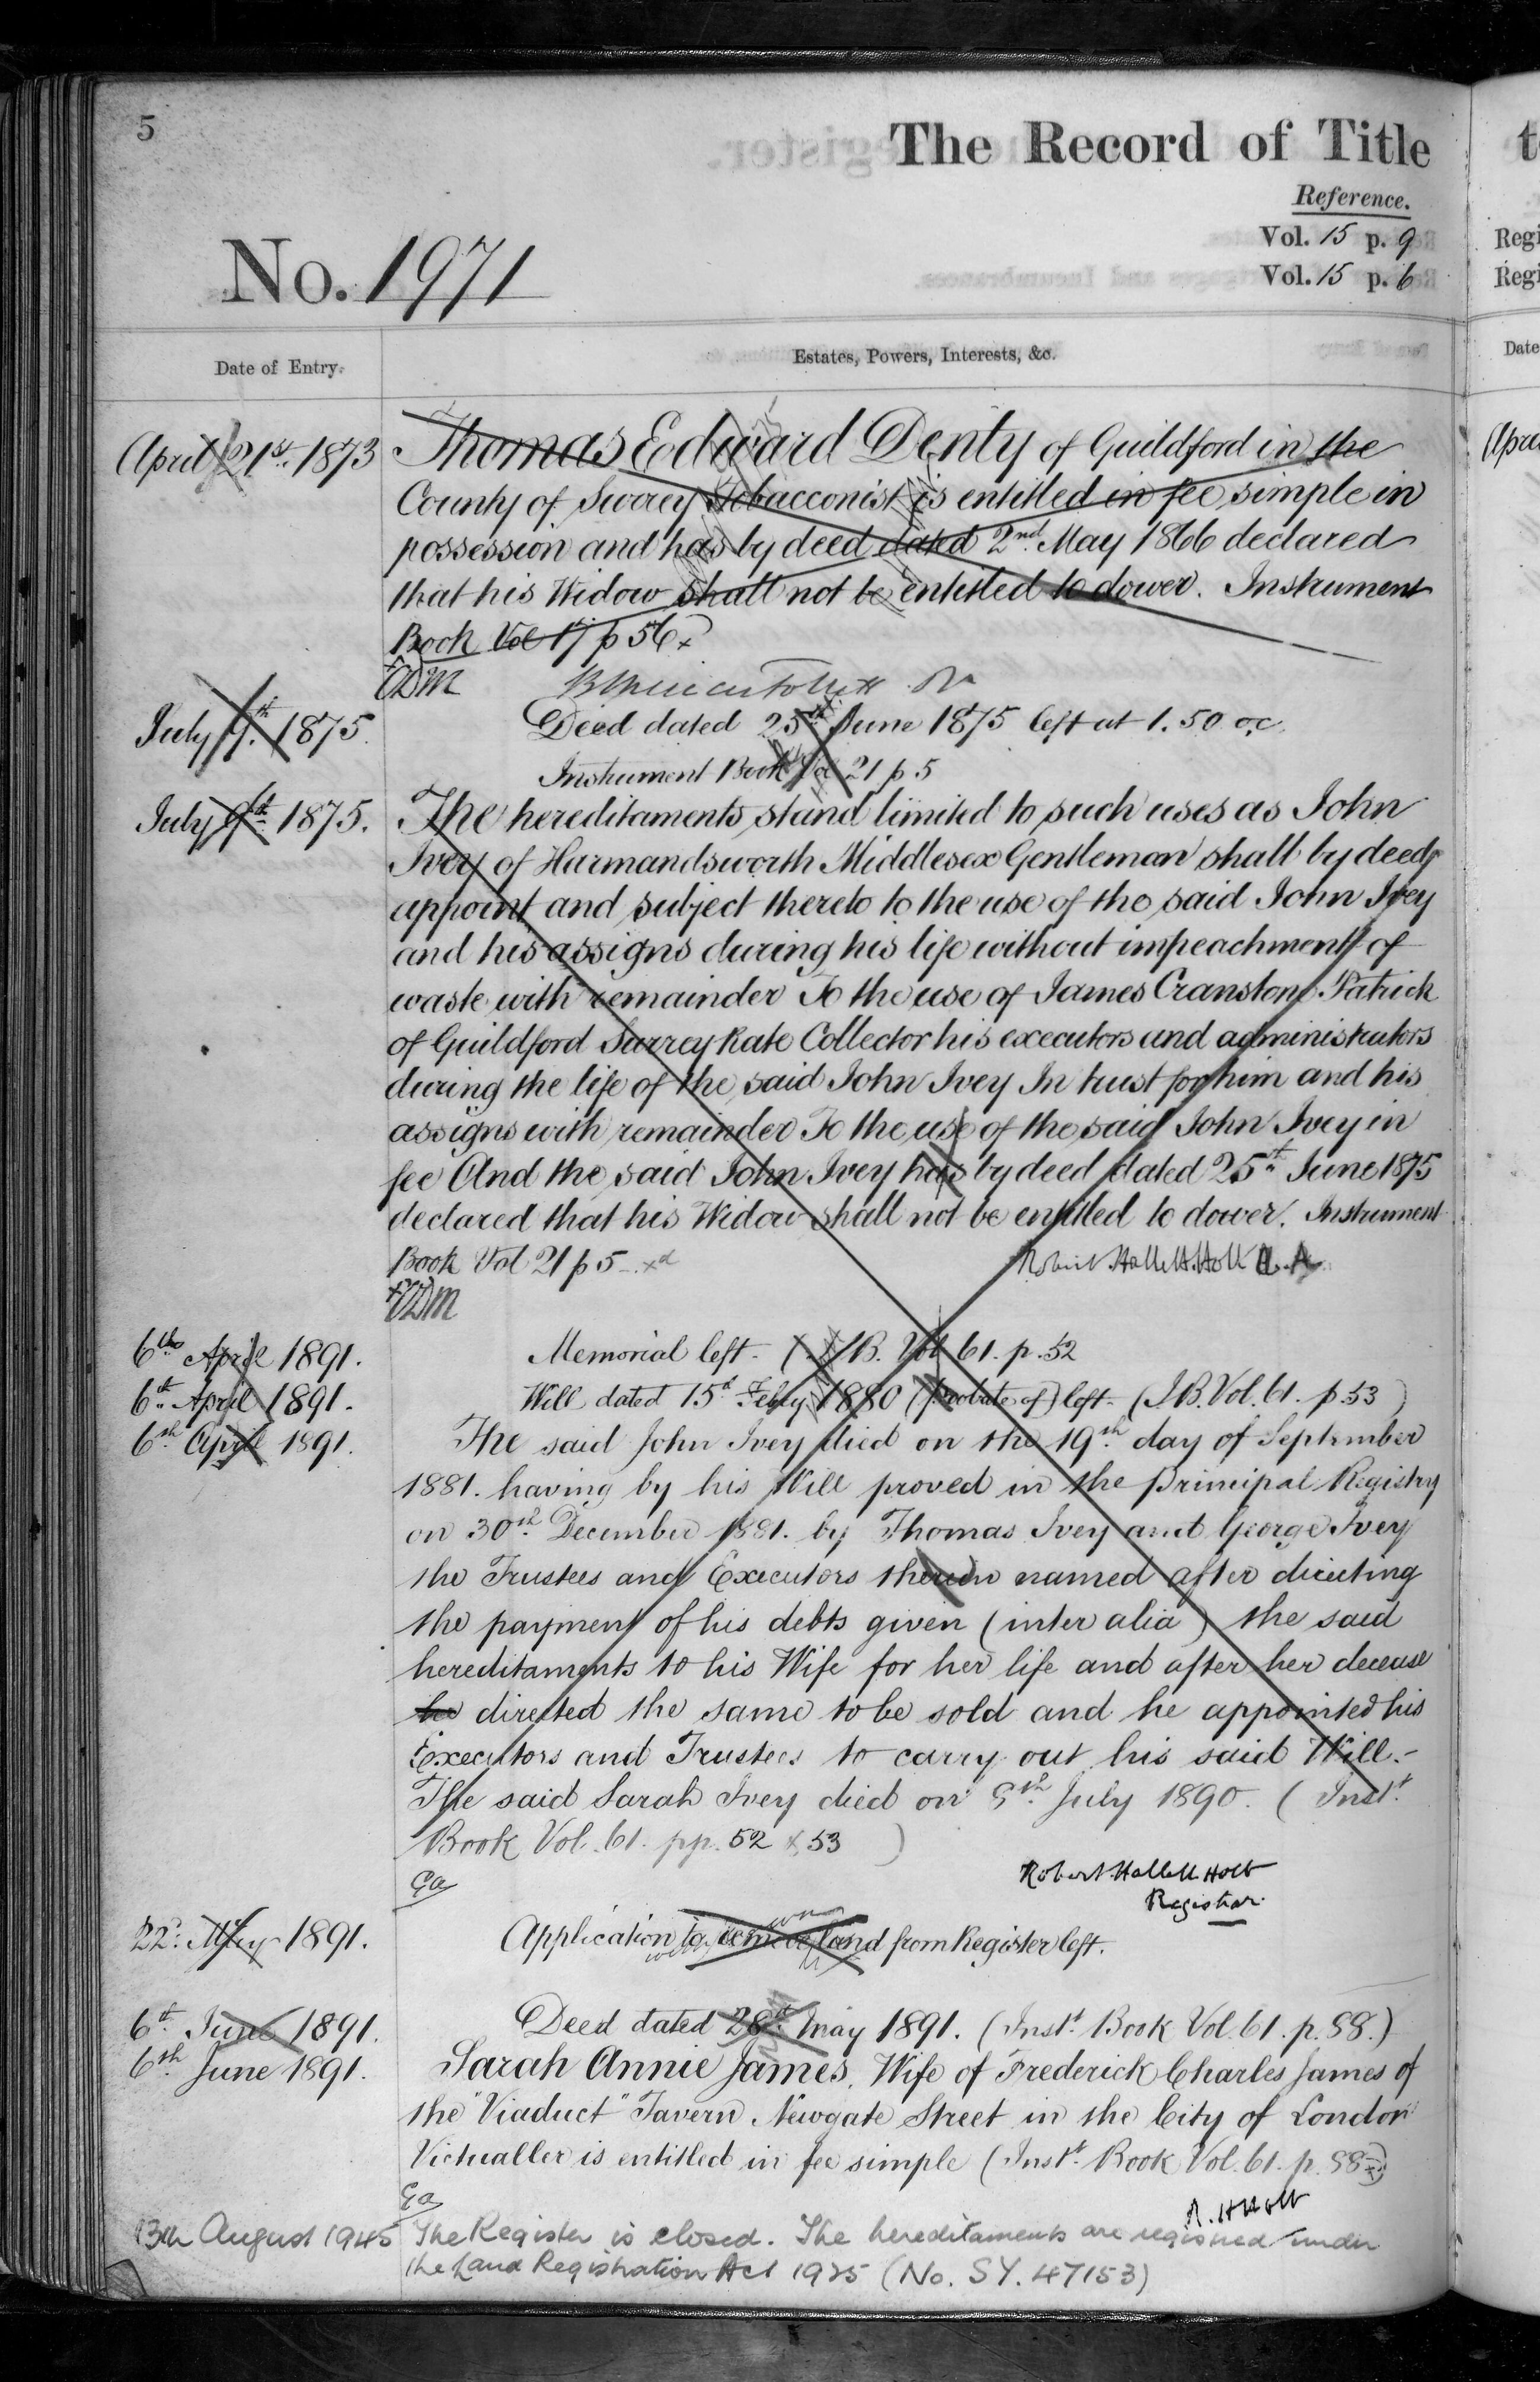 5
The Record of Title
Reference.
Vol. 15 p. 9
Vol. 15 p. 6
No. 1971
Date of Entry.
Estates, Powers, Interests, &c.
April 21st. 1873 Thomas Edward Denty of Guildford in the
County of Surrey Tobacconist is entitled in fee simple in
possession and has by deed dated 2nd. May 1866 declared
that his Widow shall not be entitled to dower. Instrument
Book Vol 17 p 56
July 9th. 1875. Deed dated 25th June 1875 left at 1.50 oc.
Instrument Book Vol 21 p 5
July 9th. 1875. The hereditaments stand limited to such uses as John
Ivery of Harmandsworth Middlesex Gentleman shall by deed
appoint and subject thereto to the use of the said John Ivery
and his assigns during his life without impeachment of
waste with remainder To the use of James Cranstone Patrick
of Guildford Surrey Rate Collector his executors and administrators
during the life of the said John Ivery In trust for him and his
assigns with remainder To the use of the said John Ivery in
fee And the said John Ivery has by deed dated 25th June 1875
declared that his Widow shall not be entitled to dower. Instrument
Book Vol 21 p 5
Robert Hallett Holt A.R.
6th April 1891. Memorial left. (I.B. Vol 61. p. 52
6th April 1891. Will dated 15th Feby 1880 (probate of) left. (I.B. Vol. 61. p. 53)
6th April 1891. The said John Ivery died on the 19th day of September
1881. having by his Will proved in the Principal Registry
on 30th December 1881. by Thomas Ivery and George Ivery
the Trustees and Executors therein named after directing
the payment of his debts given (inter alia) the said
hereditaments to his Wife for her life and after her decease
he directed the same to be sold and he appointed his
Executors and Trustees to carry out his said Will.
The said Sarah Ivery died on 9th July 1890. (Inst.
Book Vol. 61. pp. 52 & 53)
Robert Hallett Holt
Registrar.
22. May 1891. Application to remove land from Register left.
6th June 1891. Deed dated 28th May 1891. (Inst. Book Vol. 61. p. 98.)
6th June 1891. Sarah Annie James, Wife of Frederick Charles James of
the "Viaduct" Tavern Newgate Street in the City of London
Victualler is entitled in fee simple (Inst. Book Vol. 61. p. 98)
R. H. Holt
13th August 1945 The Register is closed. The hereditaments are registered under
the Land Registration Act 1925 (No. SY. 47153)